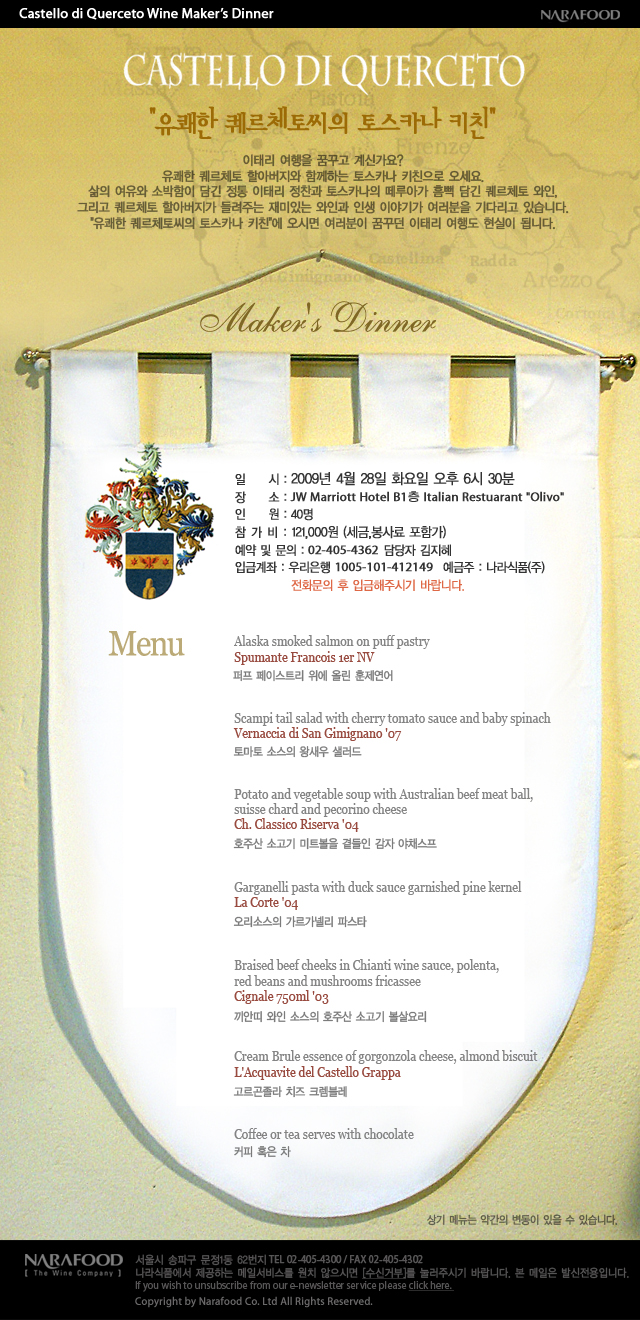 Castello di Querceto Wine Maker's Dinner
NARAFOOD
CASTELLO DI QUERCETO
"유쾌한 퀘르체토씨의 토스카나 키친"
이태리 여행을 꿈꾸고 계신가요?
유쾌한 퀘르체토 할아버지와 함께하는 토스카나 키친으로 오세요.
삶의 여유와 소박함이 담긴 정통 이태리 정찬과 토스카나의 떼루아가 흠뻑 담긴 퀘르체토 와인,
그리고 퀘르체토 할아버지가 들려주는 재미있는 와인과 인생 이야기가 여러분을 기다리고 있습니다.
"유쾌한 퀘르체토씨의 토스카나 키친"에 오시면 여러분이 꿈꾸던 이태리 여행도 현실이 됩니다.
Pistoia
Firenze
Castellina
Radda
San Gimignano
Siena
Arezzo
Cortona
Maker's Dinner
일 시 : 2009년 4월 28일 화요일 오후 6시 30분
장 소 : JW Marriott Hotel B1층 Italian Restuarant "Olivo"
인 원 : 40명
참 가 비 : 121,000원 (세금,봉사료 포함가)
예약 및 문의 : 02-405-4362 담당자 김지혜
입금계좌 : 우리은행 1005-101-412149 예금주 : 나라식품(주)
전화문의 후 입금해주시기 바랍니다.
Menu
Alaska smoked salmon on puff pastry
Spumante Francois 1er NV
퍼프 페이스트리 위에 올린 훈제연어
Scampi tail salad with cherry tomato sauce and baby spinach
Vernaccia di San Gimignano '07
토마토 소스의 왕새우 샐러드
Potato and vegetable soup with Australian beef meat ball,
suisse chard and pecorino cheese
Ch. Classico Riserva '04
호주산 소고기 미트볼을 곁들인 감자 야채스프
Garganelli pasta with duck sauce garnished pine kernel
La Corte '04
오리소스의 가르가넬리 파스타
Braised beef cheeks in Chianti wine sauce, polenta,
red beans and mushrooms fricassee
Cignale 750ml '03
끼안띠 와인 소스의 호주산 소고기 볼살요리
Cream Brule essence of gorgonzola cheese, almond biscuit
L'Acquavite del Castello Grappa
고르곤졸라 치즈 크렘블레
Coffee or tea serves with chocolate
커피 혹은 차
상기 메뉴는 약간의 변동이 있을 수 있습니다.
NARAFOOD
[ The Wine Company ]
서울시 송파구 문정1동 62번지 TEL 02-405-4300 / FAX 02-405-4302
나라식품에서 제공하는 메일서비스를 원치 않으시면 [수신거부]를 눌러주시기 바랍니다. 본 메일은 발신전용입니다.
If you wish to unsubscribe from our e-newsletter service please click here.
Copyright by Narafood Co. Ltd All Rights Reserved.